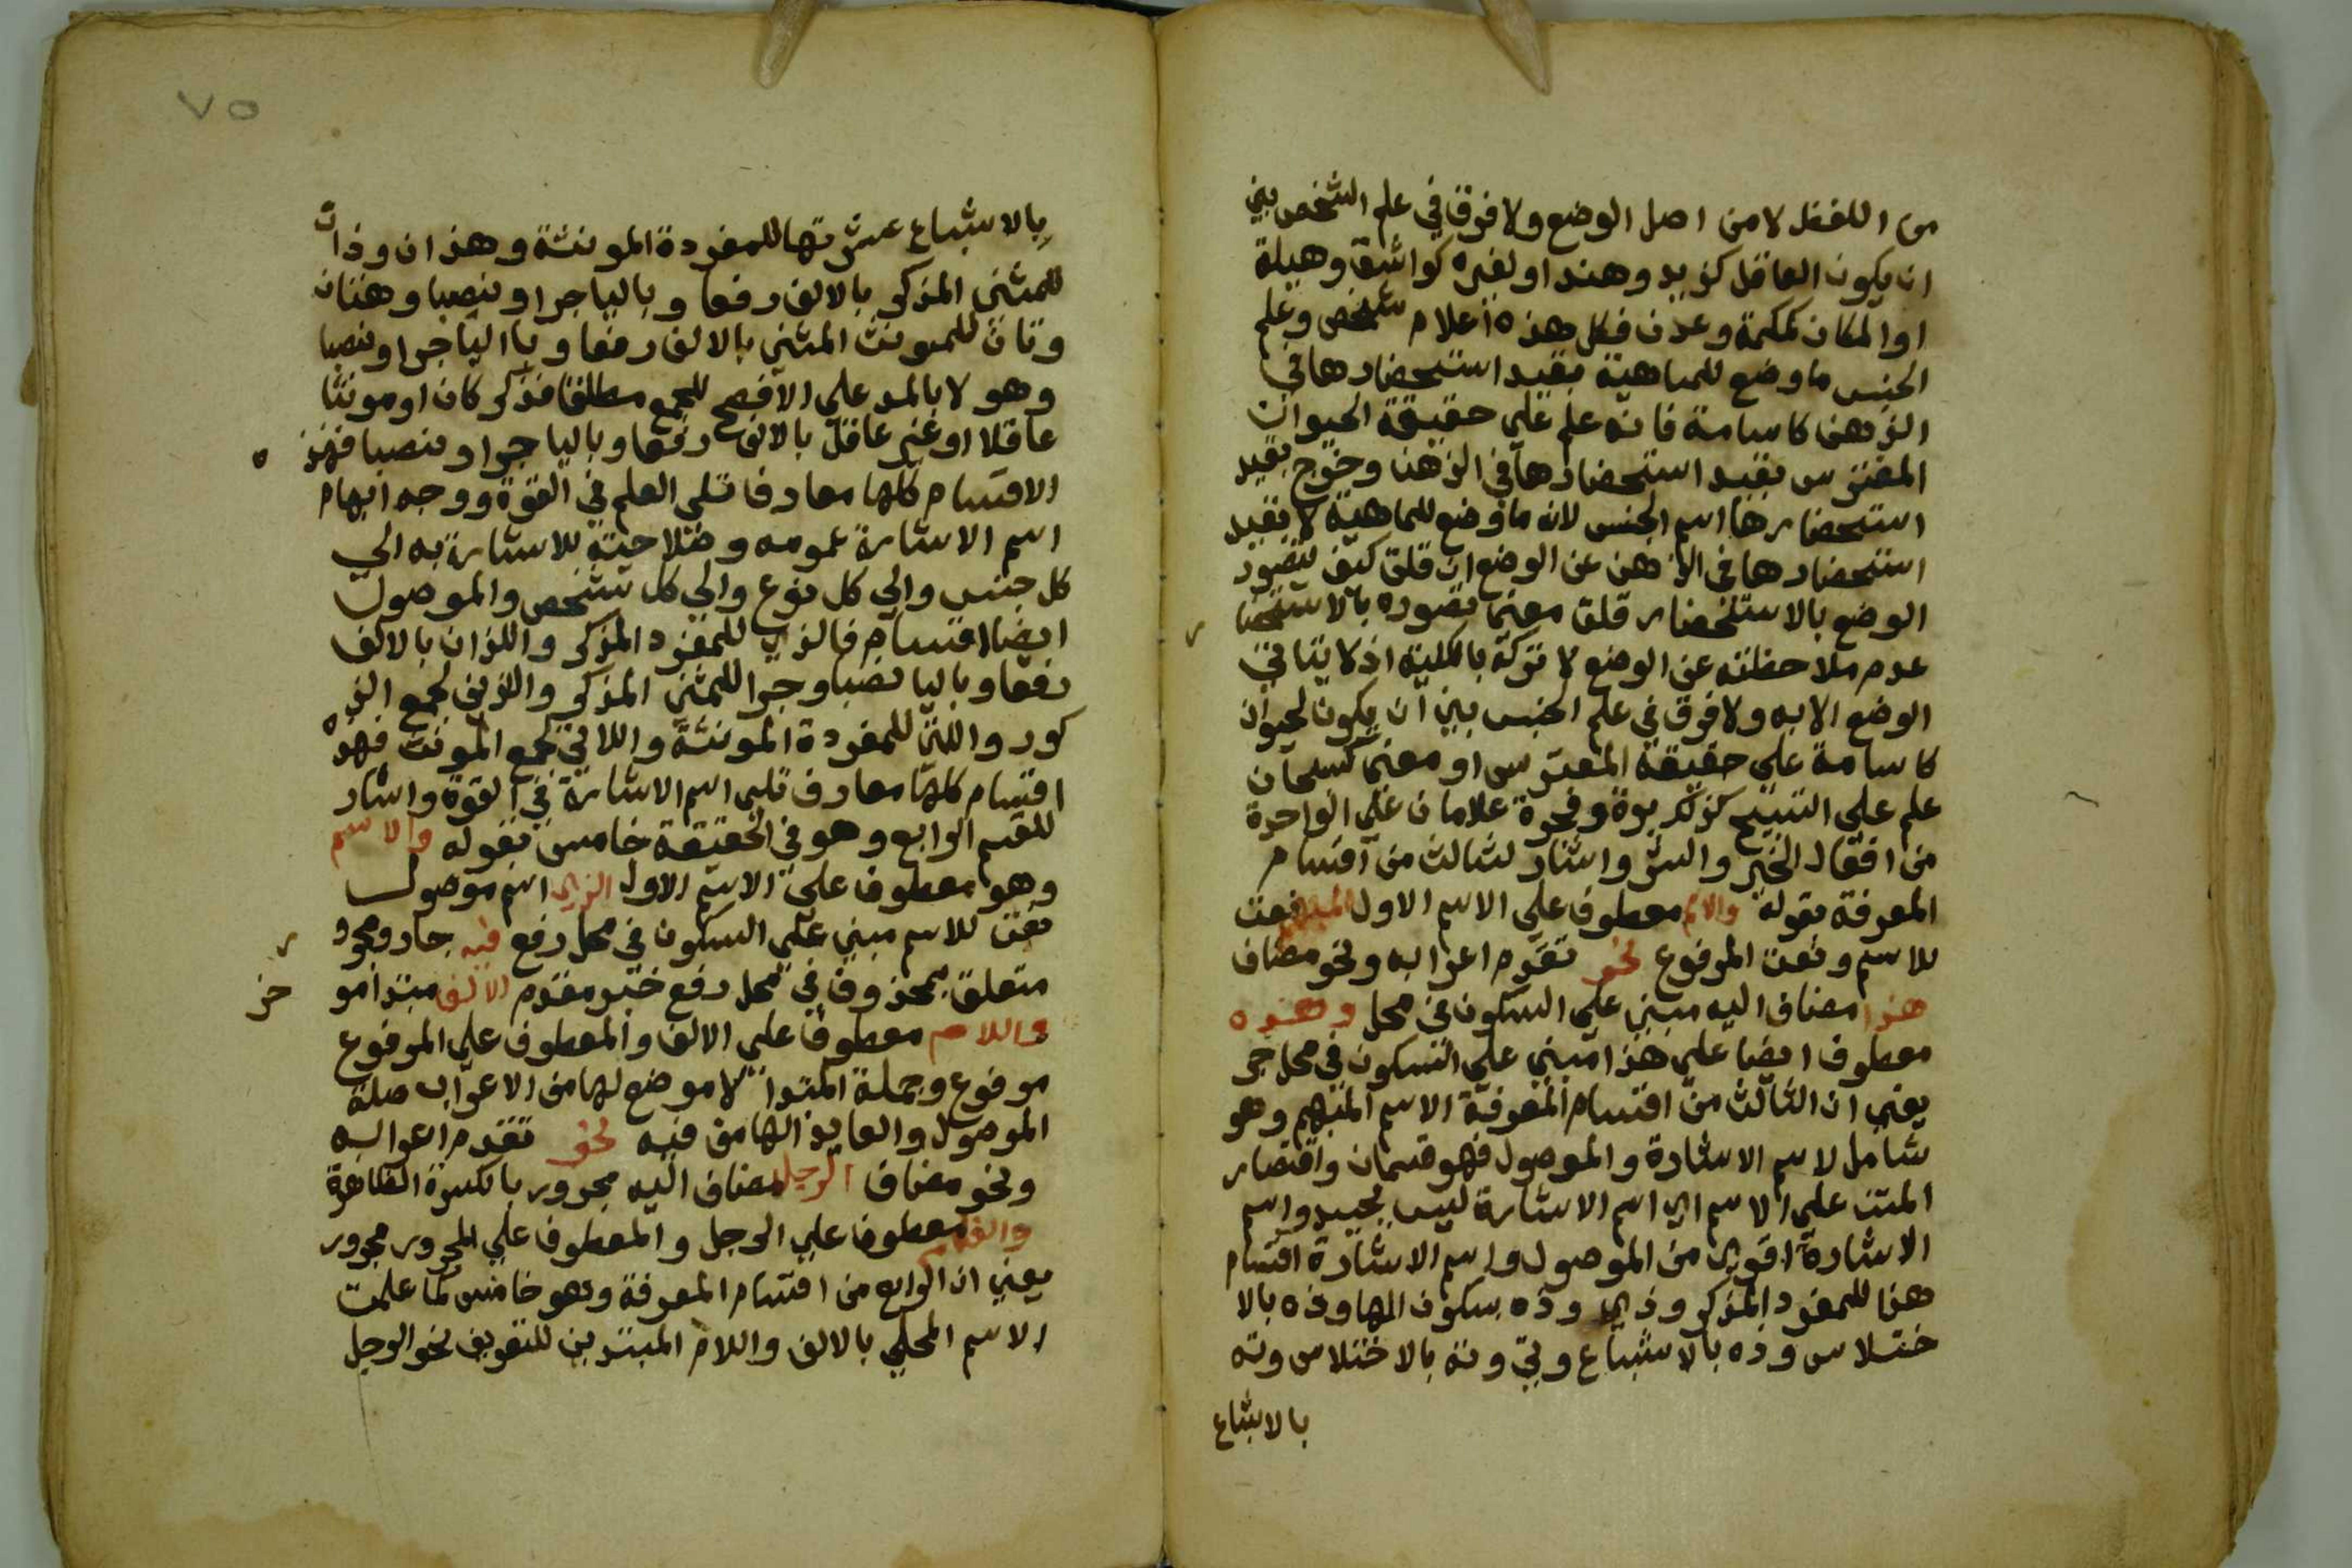 من اللفظ لا من اصل الوضع ولا فرق في علم الشخص بين
ان يكون العاقل كزيد وهند او لغيره كواشق وهيلة
او المكان كمكة وعدن فكل هذه اعلام شخص وعلم
الجنس ما وضع للماهية بقيد استحضارها في
الذهن كاسامة فانه علم على حقيقة الحيوان
المفترس بقيد استحضارها في الذهن وخرج بقيد
استحضارها اسم الجنس لانه ما وضع للماهية لا بقيد
استحضارها في الذهن عن الوضع ان قلت كيف يتصور
الوضع بالاستحضار قلت معنى تصوره بالاستحضا ر
عدم ملاحظته عن الوضع لا تركه بالكلية اذ لا يتاتى
الوضع الا به ولا فرق في علم الجنس بين ان يكون لحيوان
كاسامة على حقيقة المفترس او معنى كسبحان
علم على التسبيح كذلك برة وفجرة علامان على الواحدة
من افعال الخير والشر واشار لثالث من اقسام
المعرفة بقوله والاسم معطوف على الاسم الاول المبهم نعت
للاسم ونعت المرفوع نحو تقدم اعرابه ونحو مضاف
هذا مضاف اليه مبني على السكون في محل وهذه
معطوف ايضا على هذا مبني على السكون في محل جر
يعني ان الثالث من اقسام المعرفة الاسم المبهم وهو
شامل لاسم الاشارة والموصول فهو قسمان واقتصار
المتن على الاسم اي اسم الاشارة ليس بجيد واسم
الاشارة اقوى من الموصول واسم الاشارة اقسام
هذا للمفرد المذكر وذي وذه بسكون الها وذه بالا
ختلاس وذه بالاشباع وتي وته بالاختلاس وته
بالاشباع
٧٥
بالاشباع عشرتها للمفردة المونثة وهذان وذان
للمثنى المذكر بالالف رفعا وباليا جرا ونصبا وهتان
وتان للمونث المثنى بالالف رفعا وباليا جرا ونصبا
وهولا بالمد على الافصح للجمع مطلقا مذكر كان او مونثا
عاقلا او غير عاقل بالالف رفعا وباليا جرا ونصبا فهذ ه
الاقسام كلها معارف تلى العلم في القوة ووجه ابهام
اسم الاشارة عمومه وصلاحيته للاشارة به الي
كل جنس والي كل نوع والي كل شخص والموصول
ايضا اقسام فالذي للمفرد المذكر واللذان بالالف
رفعا وباليا نصبا وجرا للمثنى المذكر والذين لجمع الذ
كور والتي للمفردة المونثة واللاتي لجمع المونث فهذه
اقسام كلها معارف تلى اسم الاشارة في القوة واشار
للقسم الرابع وهو في الحقيقة خامس بقوله والاسم
وهو معطوف على الاسم الاول الذي اسم موصول
نعت للاسم مبني على السكون في محل رفع فيه جار ومجرو ر
متعلق بمحذوف في محل رفع خبر مقدم الالف مبتدا مو خر
واللام معطوف على الالف والمعطوف على المرفوع
مرفوع وجملة المبتدا لا موضع لها من الاعراب صلة
الموصول والعايد الها من فيه نحو تقدم اعرابه
ونحو مضاف الرجل مضاف اليه مجرور بالكسرة الظاهرة
والغلام معطوف على الرجل والمعطوف على المجرور مجرور
يعني ان الرابع من اقسام المعرفة وهو خامس كما علمت
الاسم المحلي بالالف واللام المبتدين للتعريف نحو الرجل